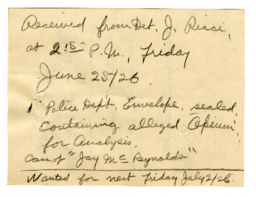 Received from Det. J. Ricci,
at 2:15 P.M., Friday
June 25/26.
1 Police Dept. Envelope, sealed,
containing alleged Opium
for Analysis.
Case of "Jay Mc Reynolds"
Wanted for next Friday July 2/26.